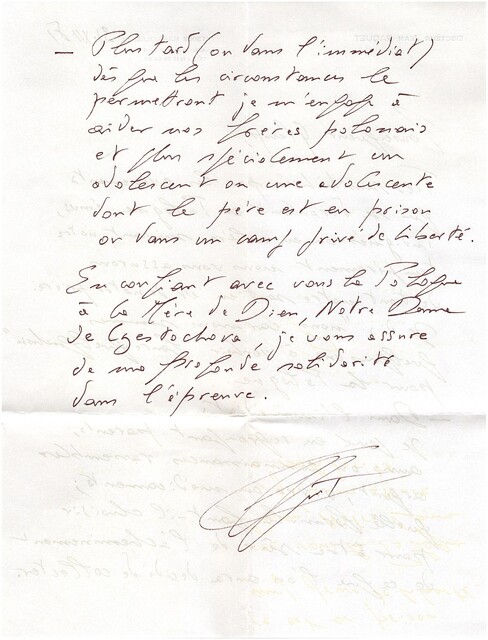 – Plus tard (ou dans l'immédiat)
dès que les circonstances le
permettront je m'engage à
aider nos frères polonais
et plus spécialement un
adolescent ou une adolescente
dont le père est en prison
ou dans un camp privé de liberté.
En confiant avec vous la Pologne
à la Mère de Dieu, Notre Dame
de Czestochova, je vous assure
de ma profonde solidarité
dans l'épreuve.